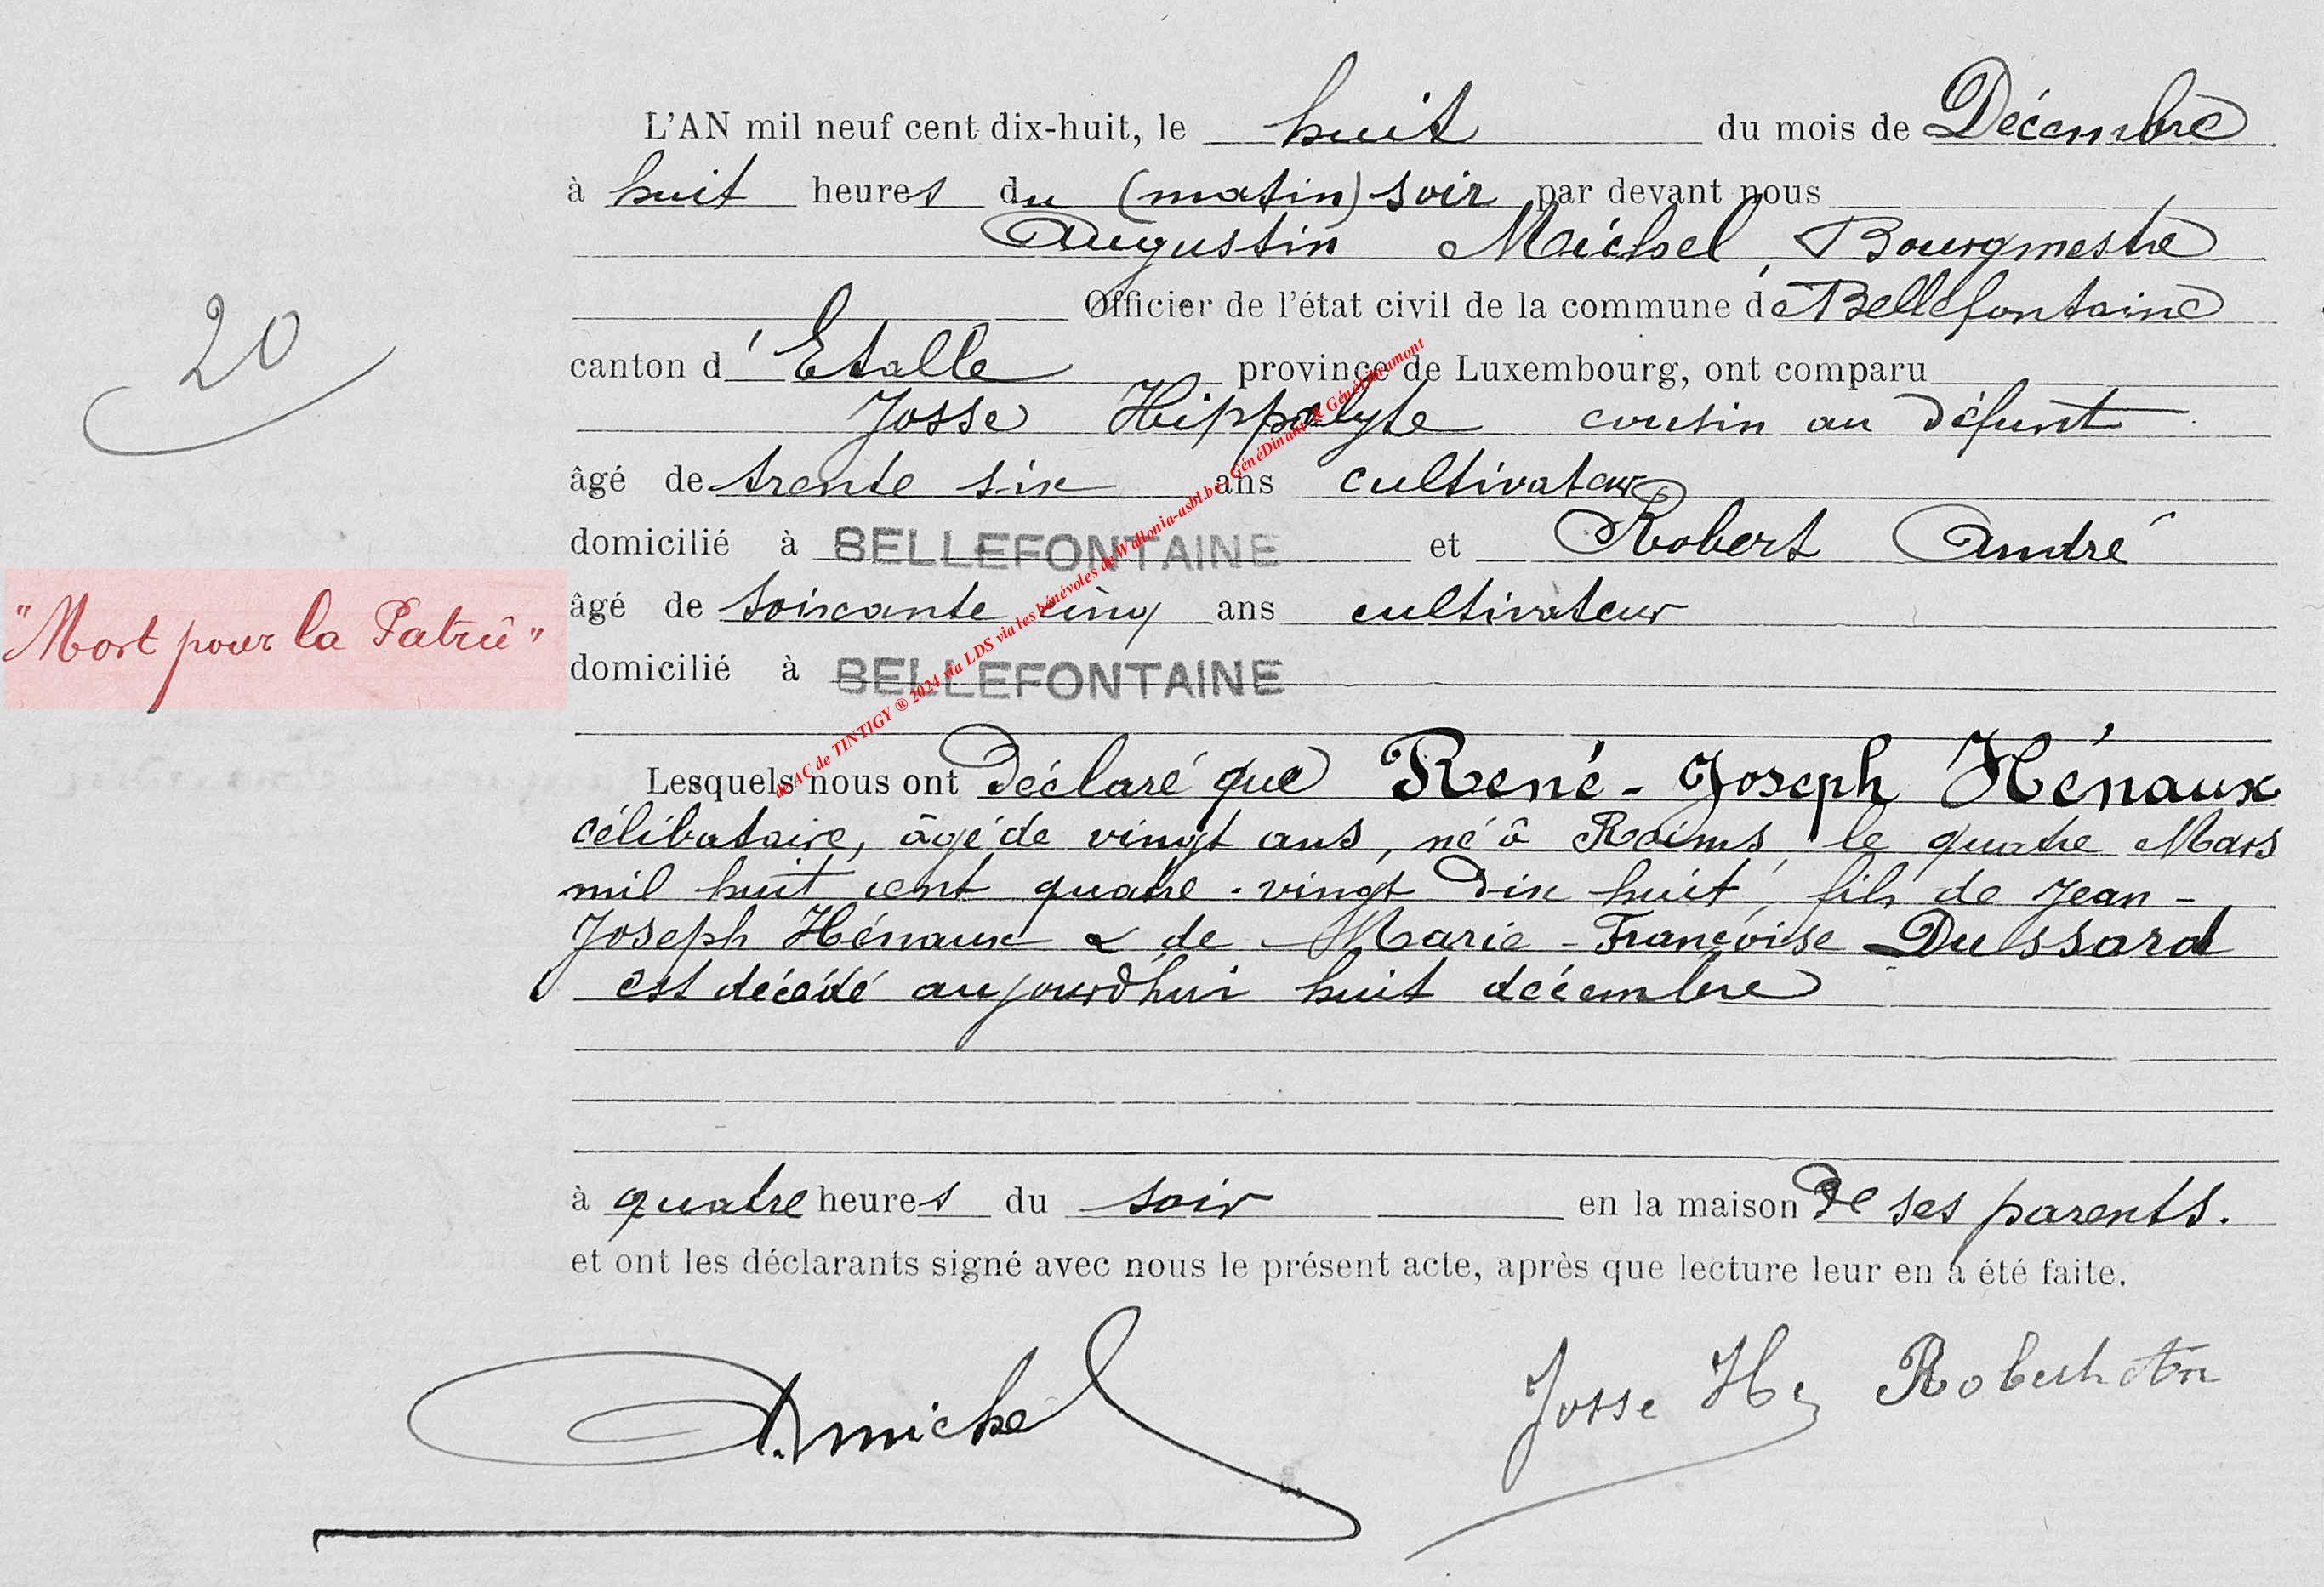 L'AN mil neuf cent dix-huit, le huit du mois de Décembre
à huit heures du (matin) soir par devant nous
Augustin Michel, Bourgmestre
Officier de l'état civil de la commune de Bellefontaine
20
canton d'Etalle province de Luxembourg, ont comparu
Josse Hippolyte cousin au défunt
âgé de trente six ans cultivateur
domicilié à BELLEFONTAINE et Robert André
âgé de soixante cinq ans cultivateur
"Mort pour la Patrie"
domicilié à BELLEFONTAINE
Lesquels nous ont Déclaré que René-Joseph Hénaux
célibataire, âgé de vingt ans, né à Reims, le quatre Mars
mil huit cent quatre-vingt dix huit, fils de Jean-
Joseph Hénaux & de Marie-Françoise Dussard
est décédé aujourd'hui huit décembre
à quatre heures du soir en la maison de ses parents.
et ont les déclarants signé avec nous le présent acte, après que lecture leur en a été faite.
A. Michel Josse Hte Robert
de AC de TINTIGY ® 2024 via LDS via les bénévoles de Wallonia-asbl.be GénéDinant & GénéLibramont